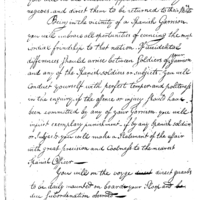 negroes, and direct them to be returned to their
Being in the vicinity of a Spanish Garrison
you will embrace all opportunities of convincing the
friendship to that nation. If accidental
differences should arise between Soldiers of Garrison
and any of the Spanish soldiers or subjects you will
conduct yourself with perfect temper and politeness
the offence or injury should have
been committed by any of your Garrison you will
inflict exemplary punishment. if by any Spanish soldier
or Subject you will make a Statement of the affair
with great precision and Coolness to the nearest
Spanish Officer
You will on the verge direct guards
to be daily mounted on board your